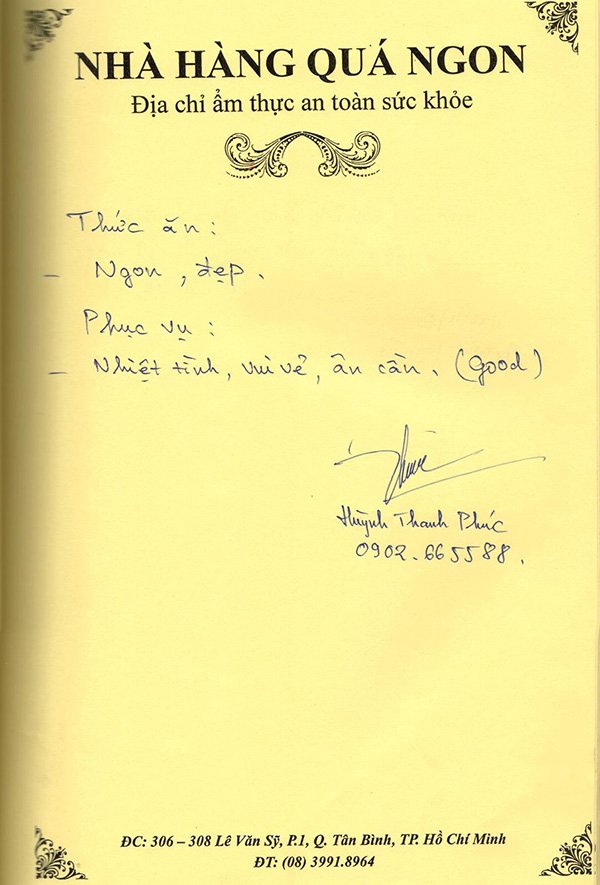 NHÀ HÀNG QUÁ NGON
Địa chỉ ẩm thực an toàn sức khỏe
Thức ăn:
– Ngon, đẹp.
Phục vụ:
– Nhiệt tình, vui vẻ, ân cần. (Good)
Huỳnh Thanh Phúc
0902.665588.
ĐC: 306 – 308 Lê Văn Sỹ, P.1, Q. Tân Bình, TP. Hồ Chí Minh
ĐT: (08) 3991.8964